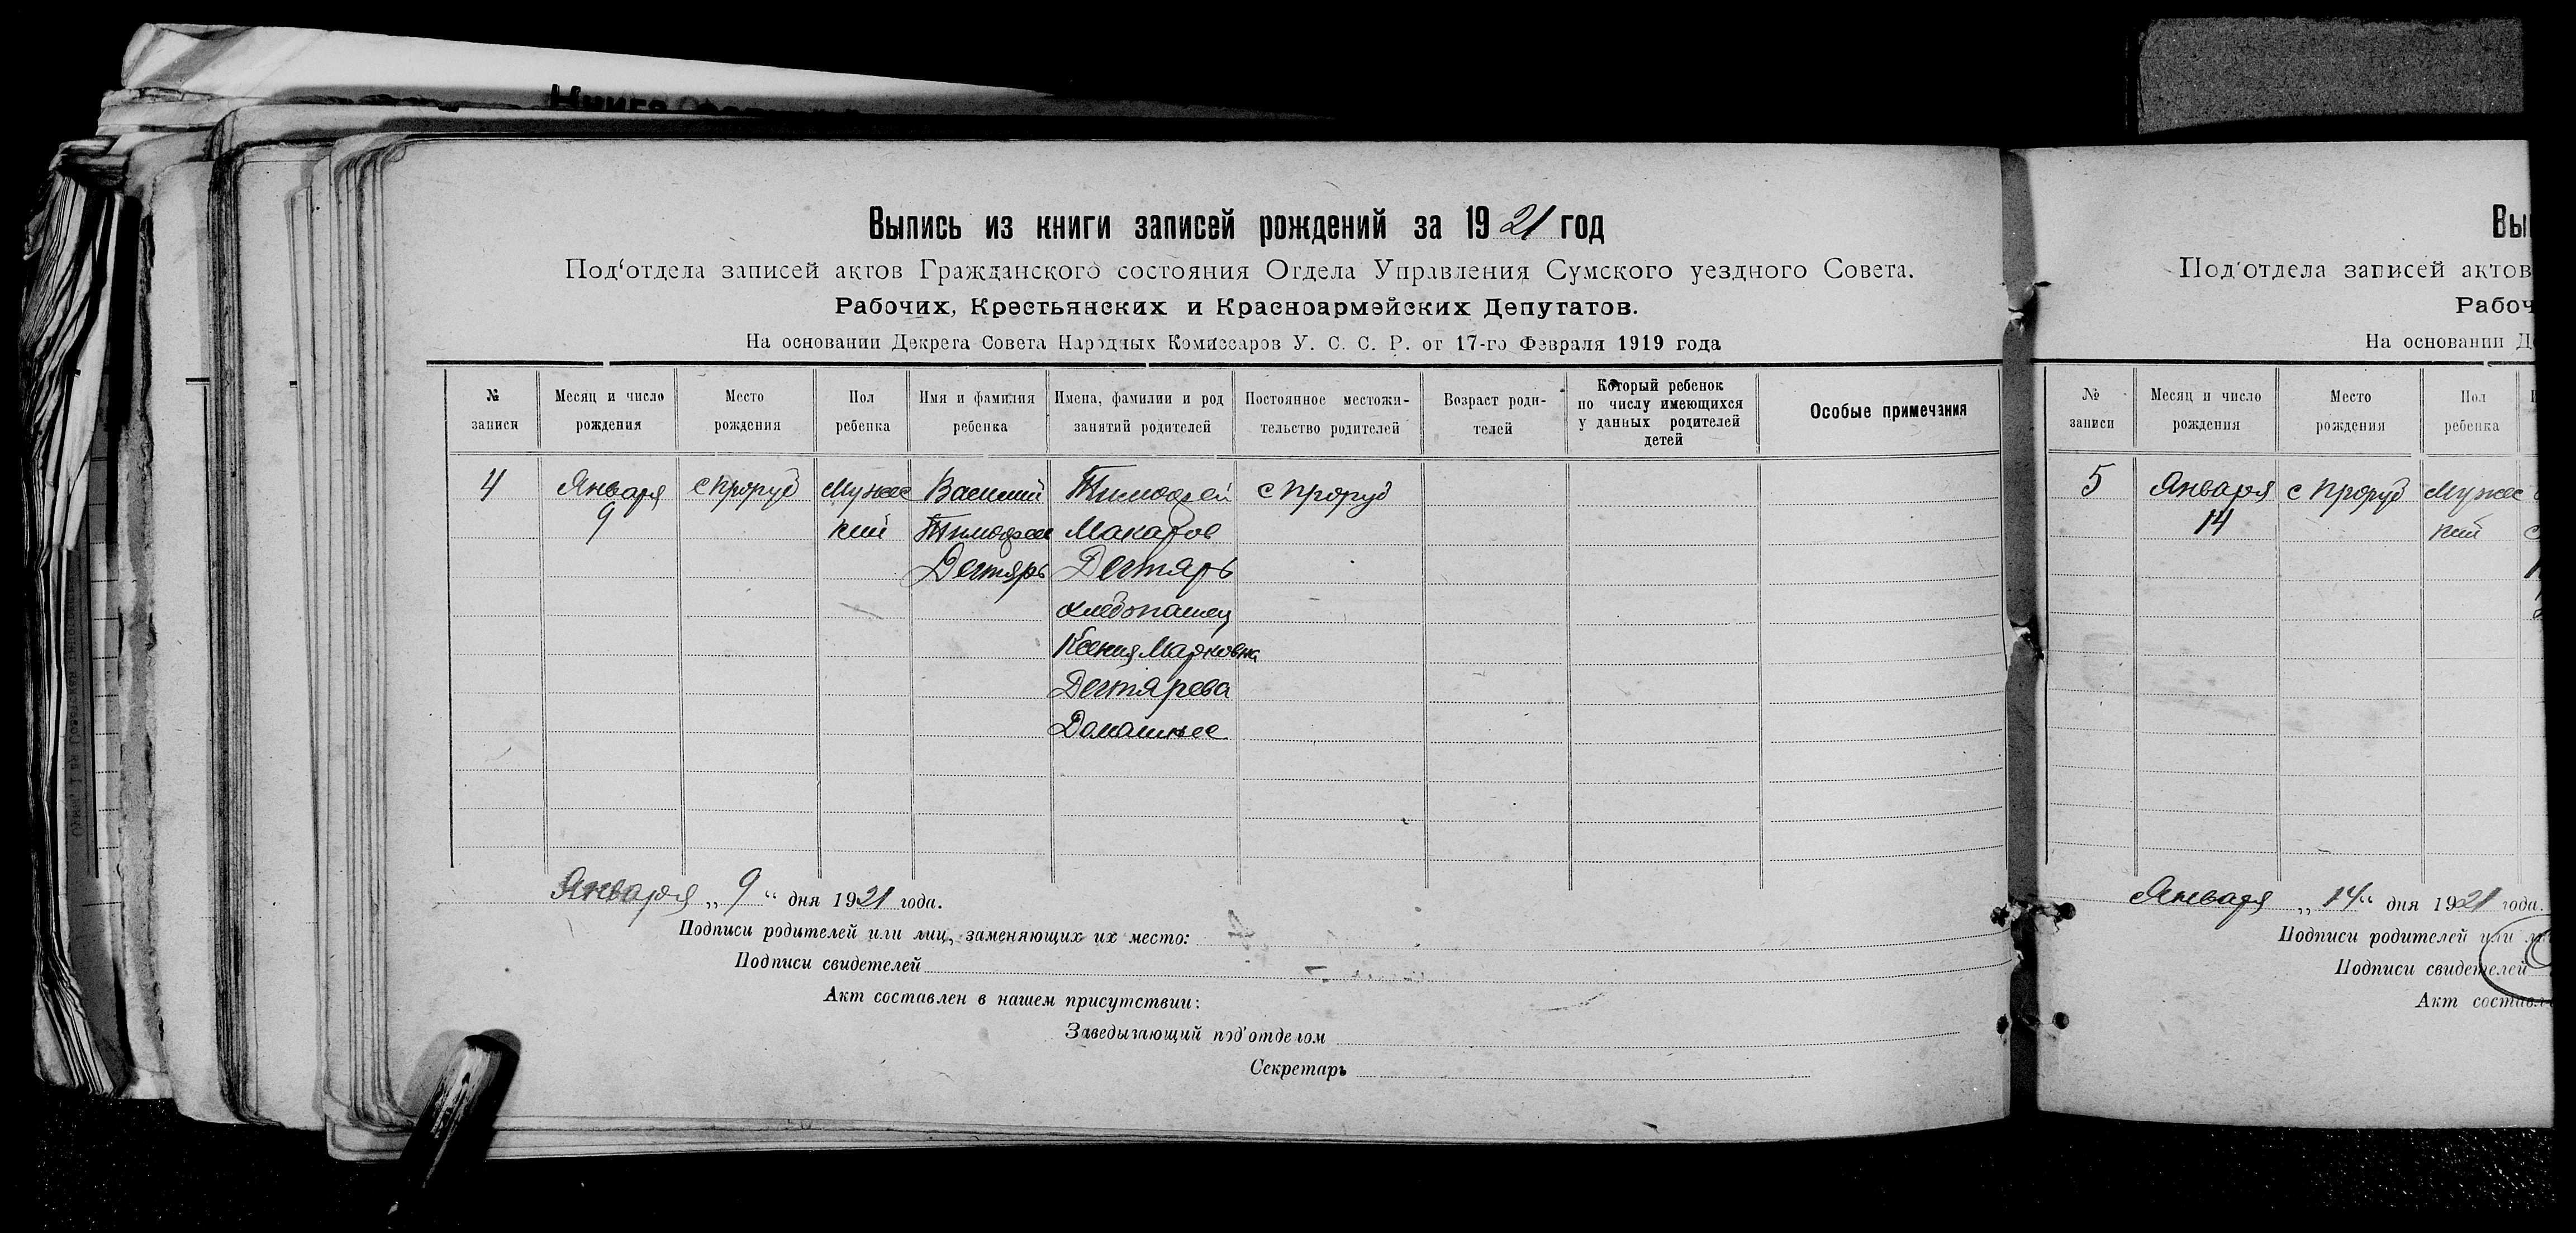 Книга
Выпись из книги записей рождений за 1921 год
Под'отдела записей актов Гражданского состояния Отдела Управления Сумского уездного Совета.
Рабочих, Крестьянских и Красноармейских Депутатов.
На основании Декрета Совета Народных Комиссаров У. С. С. Р. от 17-го Февраля 1919 года
№ записи
Месяц и число рождения
Место рождения
Пол ребенка
Имя и фамилия ребенка
Имена, фамилии и род занятий родителей
Постоянное местожи-
тельство родителей
Возраст роди-
телей
Который ребенок
по числу имеющихся
у данных родителей
детей
Особые примечания
4
Января
9
с Проруб
Мужес
кий
Василий
Тимофее
Дегтярь
Тимофей
Макаров
Дегтярь
хлебопашец
Ксения Марковна
Дегтярева
Домашнее
с Проруб
Января „ 9 “ дня 1921 года.
Подписи родителей или лиц, заменяющих их место:
Подписи свидетелей
Акт составлен в нашем присутствии:
Заведывающий под'отделом
Секретарь
Вы
Под'отдела записей актов
Рабоч
На основании Д
№ записи
Месяц и число рождения
Место рождения
Пол ребенка
5
Января
14
с Проруб
Мужес
кий
Января „ 14 “ дня 1921 года.
Подписи родителей или
Подписи свидетелей
Акт составл